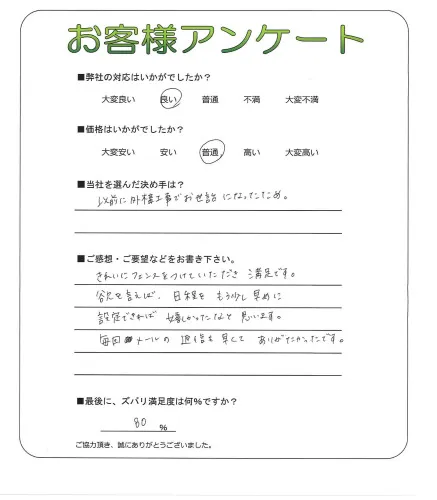 お客様アンケート
■弊社の対応はいかがでしたか？
大変良い 良い 普通 不満 大変不満
■価格はいかがでしたか？
大変安い 安い 普通 高い 大変高い
■当社を選んだ決め手は？
以前に外構工事でお世話になったため。
■ご感想・ご要望などをお書き下さい。
きれいにフェンスをつけていただき 満足です。
欲を言えば、日程を もう少し早めに
設定できれば 嬉しかったなと思います。
毎回メールの 返信も早くて ありがたかったです。
■最後に、ズバリ満足度は何%ですか？
80 %
ご協力頂き、誠にありがとうございました。